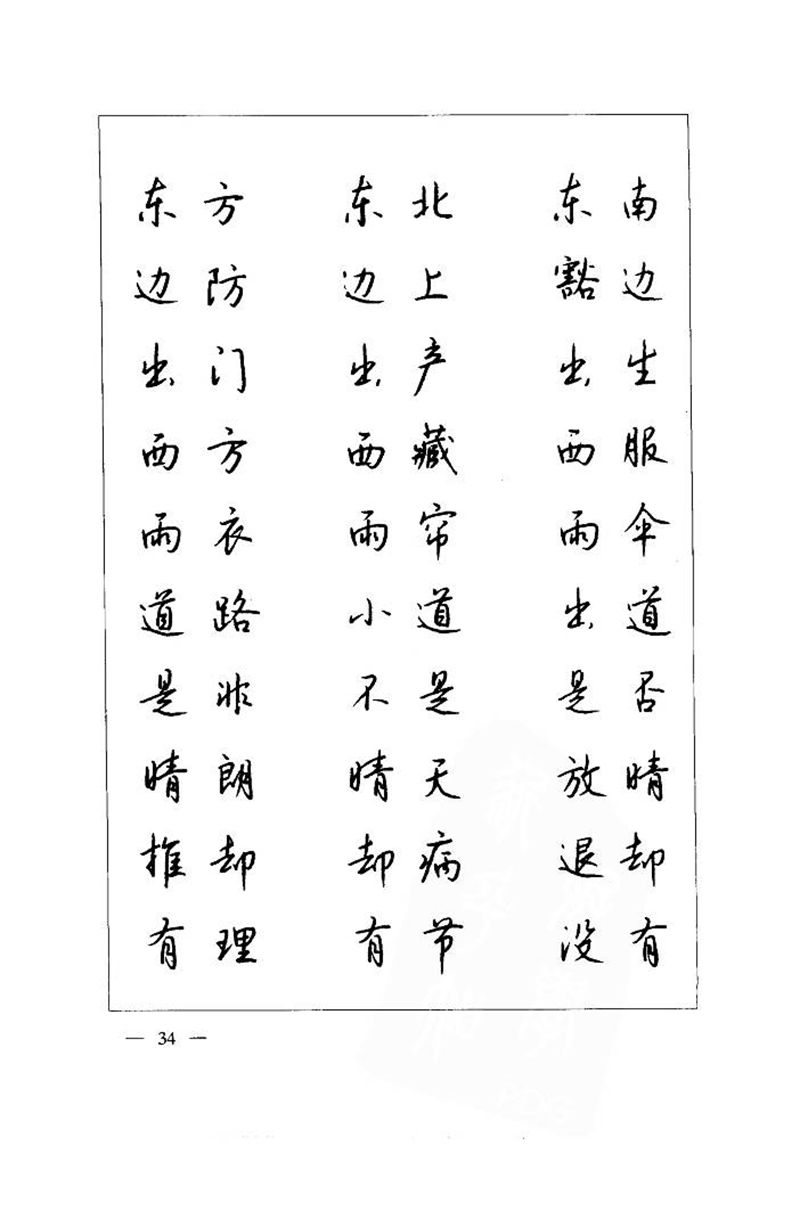 东方 东北 东南
边防 边上 豁边
出门 出产 出生
西方 西藏 西服
雨衣 雨帘 雨伞
道路 小道 出道
是非 不是 是否
晴朗 晴天 放晴
推却 却病 退却
有理 有节 没有
— 34 —
PDG